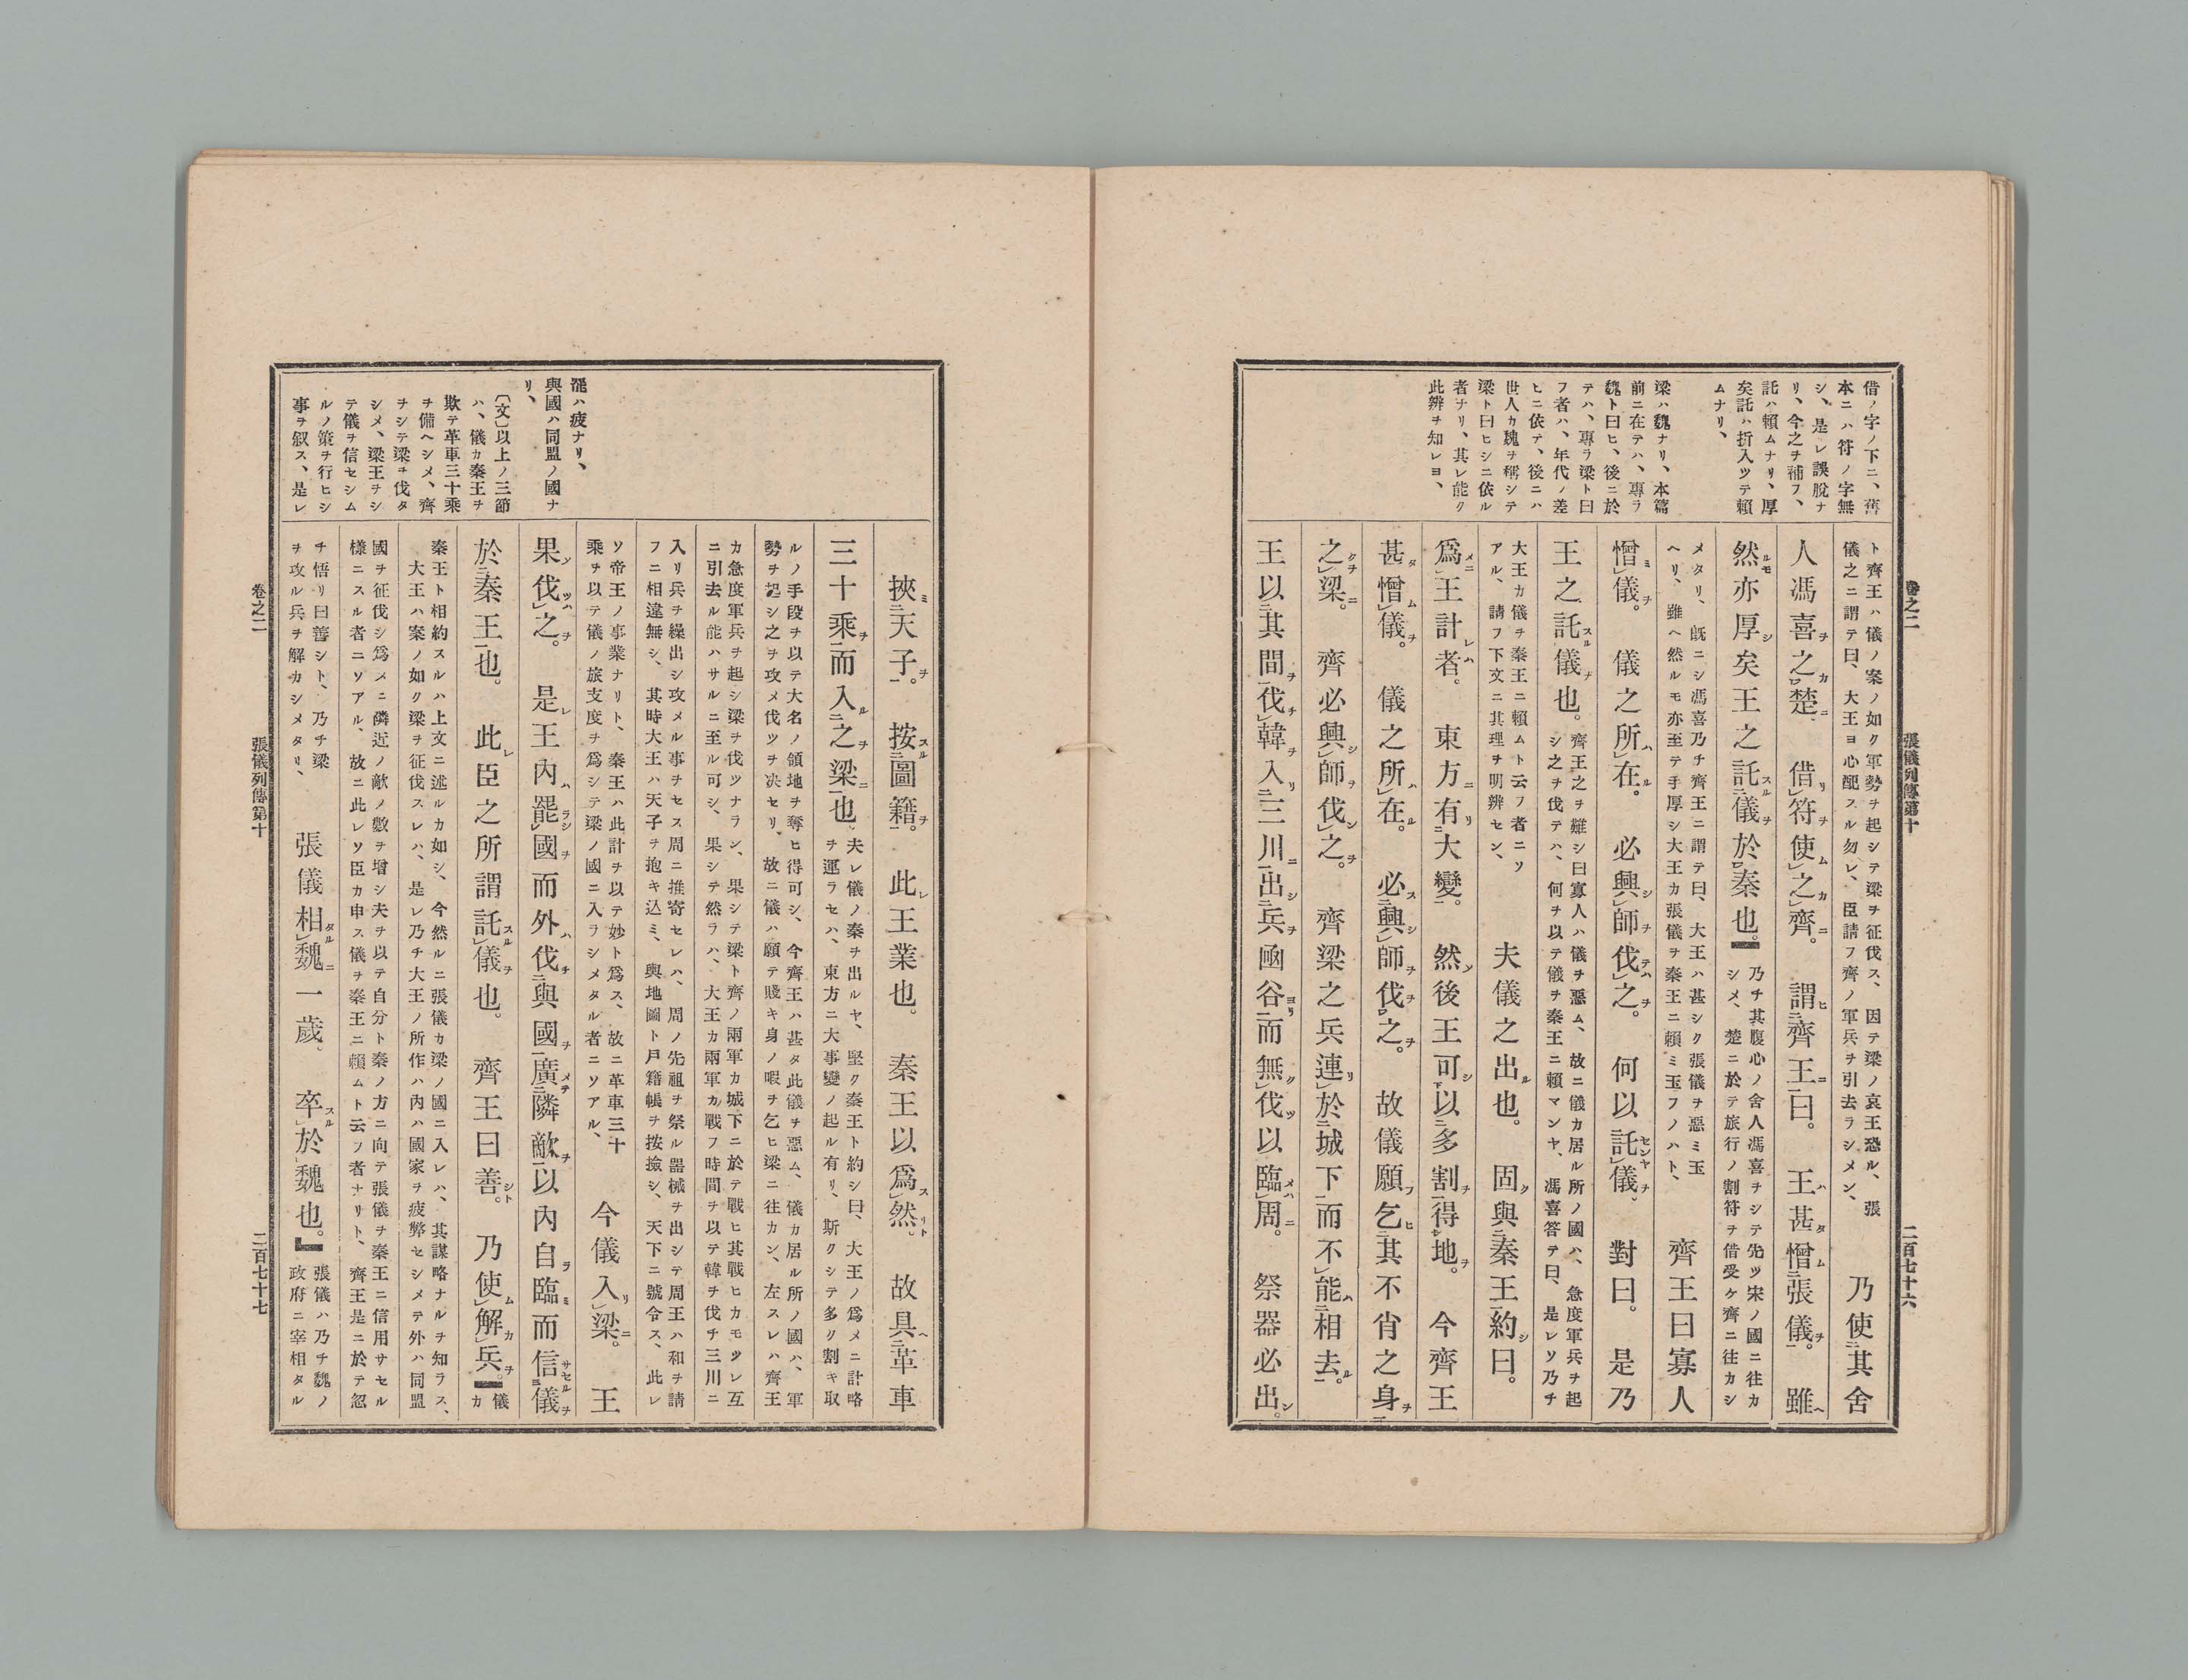 借ノ字ノ下ニ、舊
本ニハ符ノ字無
シ、是レ誤脫ナ
リ、今之ヲ補フ、
託ハ賴ムナリ、厚
矣託ハ折入ツテ賴
ムナリ、
梁ハ魏ナリ、本篇
前ニ在テハ、專ラ
魏ト曰ヒ、後ニ於
テハ、專ラ梁ト曰
フ者ハ、年代ノ差
ヒニ依テ、後ニハ
世人カ魏ヲ稱シテ
梁ト曰ヒシニ依ル
者ナリ、其レ能ク
此辨ヲ知レヨ、
卷之二 張儀列傳第十 二百七十六
ト齊王ハ儀ノ案ノ如ク軍勢ヲ起シテ梁ヲ征伐ス、因テ梁ノ哀王恐ル、張
儀之ニ謂テ曰、大王ヨ心配スル勿レ、臣請フ齊ノ軍兵ヲ引去ラシメン、
乃使其舍
人馮喜之楚、借符使之齊。謂齊王曰。王甚憎張儀。雖
然亦厚矣王之託儀於秦也。
乃チ其腹心ノ舍人馮喜ヲシテ先ツ宋ノ國ニ往カ
シメ、楚ニ於テ旅行ノ割符ヲ借受ケ齊ニ往カシ
メタリ、既ニシ馮喜乃チ齊王ニ謂テ曰、大王ハ甚シク張儀ヲ惡ミ玉
ヘリ、雖ヘ然ルモ亦至テ手厚シ大王カ張儀ヲ秦王ニ賴ミ玉フノハト、
齊王曰寡人
憎儀。儀之所在。必興師伐之。何以託儀。對曰。是乃
王之託儀也。
齊王之ヲ難シ曰寡人ハ儀ヲ惡ム、故ニ儀カ居ル所ノ國ハ、急度軍兵ヲ起
シ之ヲ伐テハ、何ヲ以テ儀ヲ秦王ニ賴マンヤ、馮喜答テ曰、是レソ乃チ
大王カ儀ヲ秦王ニ賴ムト云フ者ニソ
アル、請フ下文ニ其理ヲ明辨セン、
夫儀之出也。固與秦王約曰。
爲王計者。東方有大變。然後王可以多割得地。今齊王
甚憎儀。儀之所在。必興師伐之。故儀願乞其不肖之身
之梁。齊必興師伐之。齊梁之兵連於城下而不能相去。
王以其間伐韓入三川出兵凾谷而無伐以臨周。祭器必出。
罷ハ疲ナリ、
與國ハ同盟ノ國ナ
リ、
〔文〕以上ノ三節
ハ、儀カ秦王ヲ
欺テ革車三十乘
ヲ備ヘシメ、齊
ヲシテ梁ヲ伐タ
シメ、梁王ヲシ
テ儀ヲ信セシム
ルノ策ヲ行ヒシ
事ヲ叙ス、是レ
挾天子。按圖籍。此王業也。秦王以爲然。故具革車
三十乘而入之梁也
夫レ儀ノ秦ヲ出ルヤ、堅ク秦王ト約シ曰、大王ノ爲メニ計略
ヲ運ラセハ、東方ニ大事變ノ起ル有リ、斯クシテ多ク割キ取
ルノ手段ヲ以テ大名ノ領地ヲ奪ヒ得可シ、今齊王ハ甚タ此儀ヲ惡ム、儀カ居ル所ノ國ハ、軍
勢ヲ起シ之ヲ攻メ伐ツヲ决セリ、故ニ儀ハ願テ賤キ身ノ暇ヲ乞ヒ梁ニ往カン、左スレハ齊王
カ急度軍兵ヲ起シ梁ヲ伐ツナラン、果シテ梁ト齊ノ兩軍カ城下ニ於テ戰ヒ其戰ヒカモツレ互
ニ引去ル能ハサルニ至ル可シ、果シテ然ラハ、大王カ兩軍カ戰フ時間ヲ以テ韓ヲ伐チ三川ニ
入リ兵ヲ繰出シ攻メル事ヲセス周ニ推寄セレハ、周ノ先祖ヲ祭ル器械ヲ出シテ周王ハ和ヲ請
フニ相違無シ、其時大王ハ天子ヲ抱キ込ミ、輿地圖ト戶籍帳ヲ按撿シ、天下ニ號令ス、此レ
ソ帝王ノ事業ナリト、秦王ハ此計ヲ以テ妙ト爲ス、故ニ革車三十
乘ヲ以テ儀ノ旅支度ヲ爲シテ梁ノ國ニ入ラシメタル者ニソアル、
今儀入梁。王
果伐之。是王內罷國而外伐與國廣隣敵以內自臨而信儀
於秦王也。此臣之所謂託儀也。齊王曰善。乃使解兵。
儀カ
秦王ト相約スルハ上文ニ述ルカ如シ、今然ルニ張儀カ梁ノ國ニ入レハ、其謀略ナルヲ知ラス、
大王ハ案ノ如ク梁ヲ征伐スレハ、是レ乃チ大王ノ所作ハ內ハ國家ヲ疲弊セシメテ外ハ同盟
國ヲ征伐シ爲メニ隣近ノ敵ノ數ヲ增シ夫ヲ以テ自分ト秦ノ方ニ向テ張儀ヲ秦王ニ信用サセル
樣ニスル者ニソアル、故ニ此レソ臣カ申ス儀ヲ秦王ニ賴ムト云フ者ナリト、齊王是ニ於テ忽
チ悟リ曰善シト、乃チ梁
ヲ攻ル兵ヲ解カシメタリ、
張儀相魏一歲。卒於魏也。』
張儀ハ乃チ魏ノ
政府ニ宰相タル
卷之二 張儀列傳第十 二百七十七